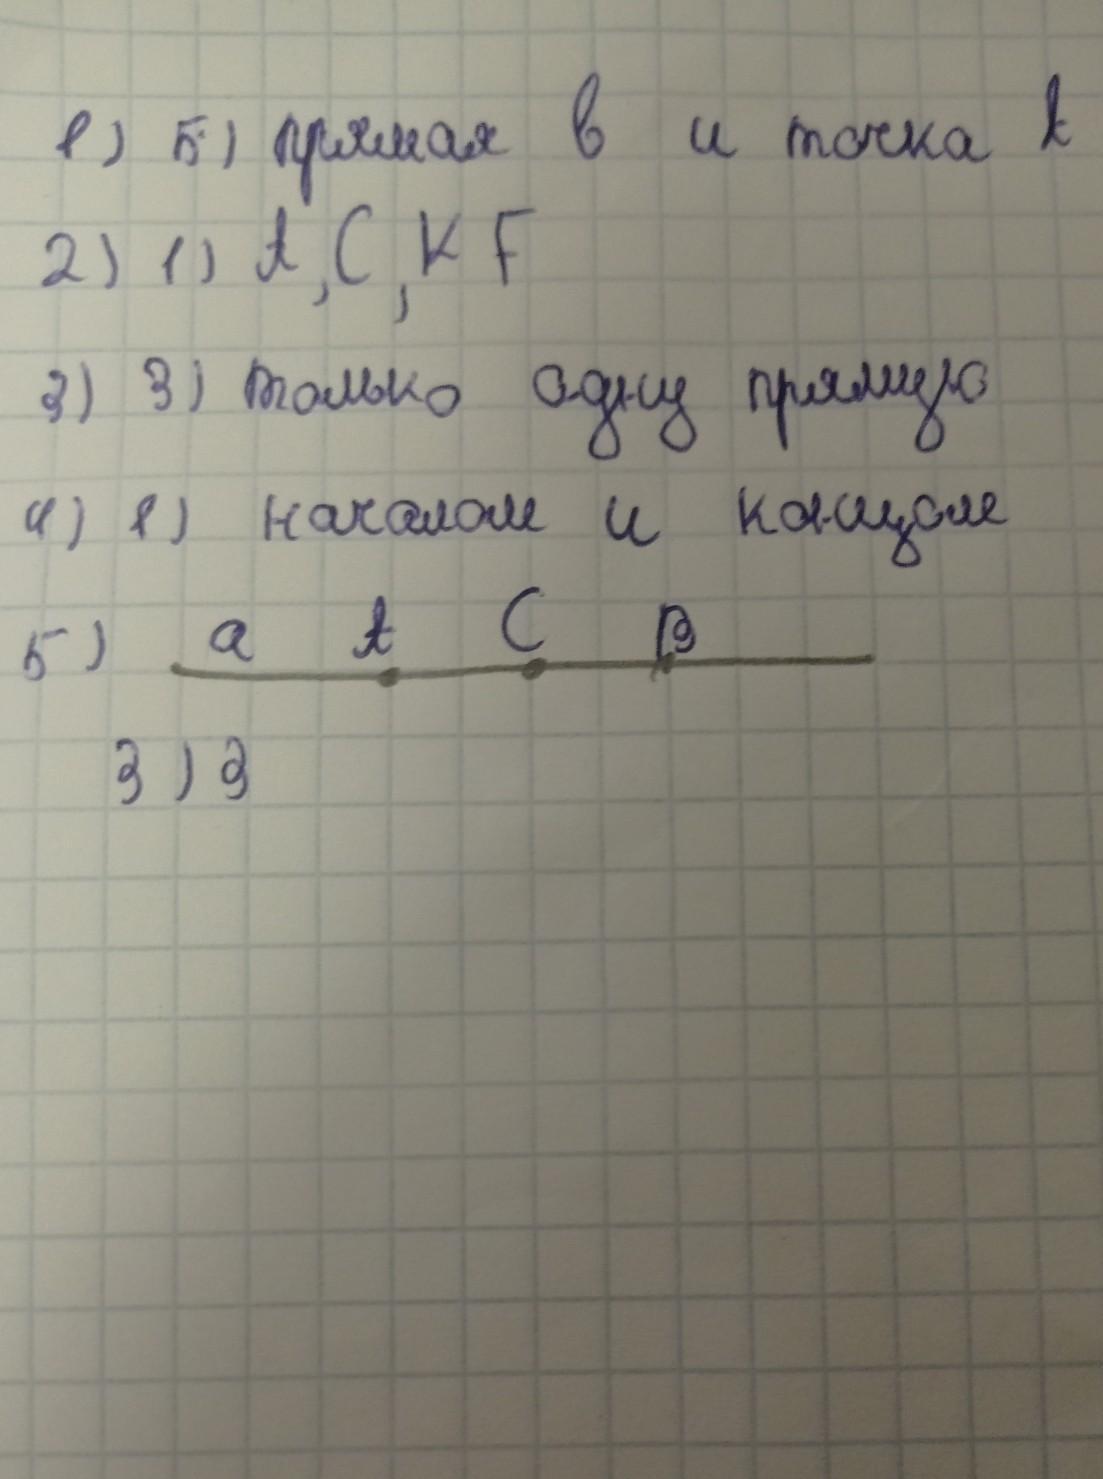 1) 5) прямая b и точка A
2) 1) A, C, K F
3) 3) только одну прямую
4) 1) началом и концом
5) a A C B
3) 3